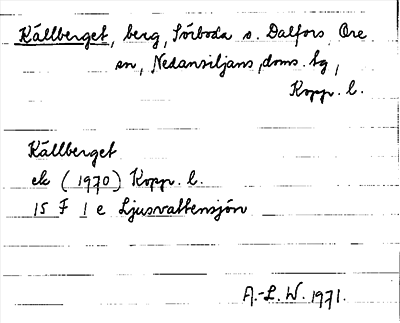 Källberget, berg, Sörboda s. Dalfors Ore
sn, Nedansiljans doms. tg,
Kopp. l.
Källberget
ek (1970) Kopp. l.
15 F 1 e Ljusvattensjön
A.-L. W. 1971.